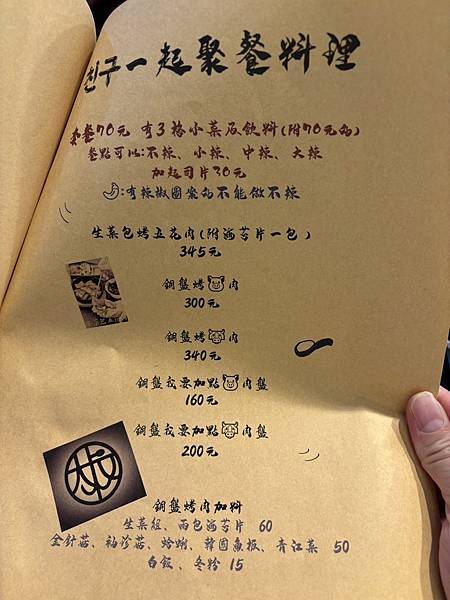 친구一起聚餐料理
套餐70元 有3格小菜及飲料(附70元的)
餐點可以:不辣、小辣、中辣、大辣
加起司片30元
:有辣椒圖案的不能做不辣
生菜包烤五花肉(附海苔片一包)
345元
銅盤烤🐷肉
300元
銅盤烤🐮肉
340元
銅盤我要加點🐷肉盤
160元
銅盤我要加點🐮肉盤
200元
銅盤烤肉加料
生菜組、兩包海苔片 60
金針菇、袖珍菇、蛤蜊、韓國魚板、青江菜 50
白飯、冬粉 15